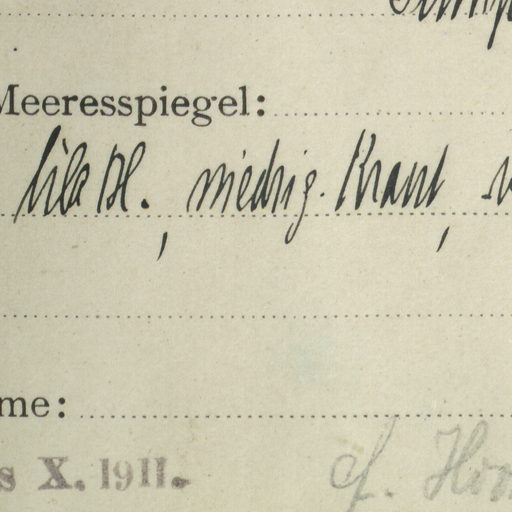 Meeresspiegel:
lila Bl., niedrig. Kraut,
me:
s X. 1911. cf.